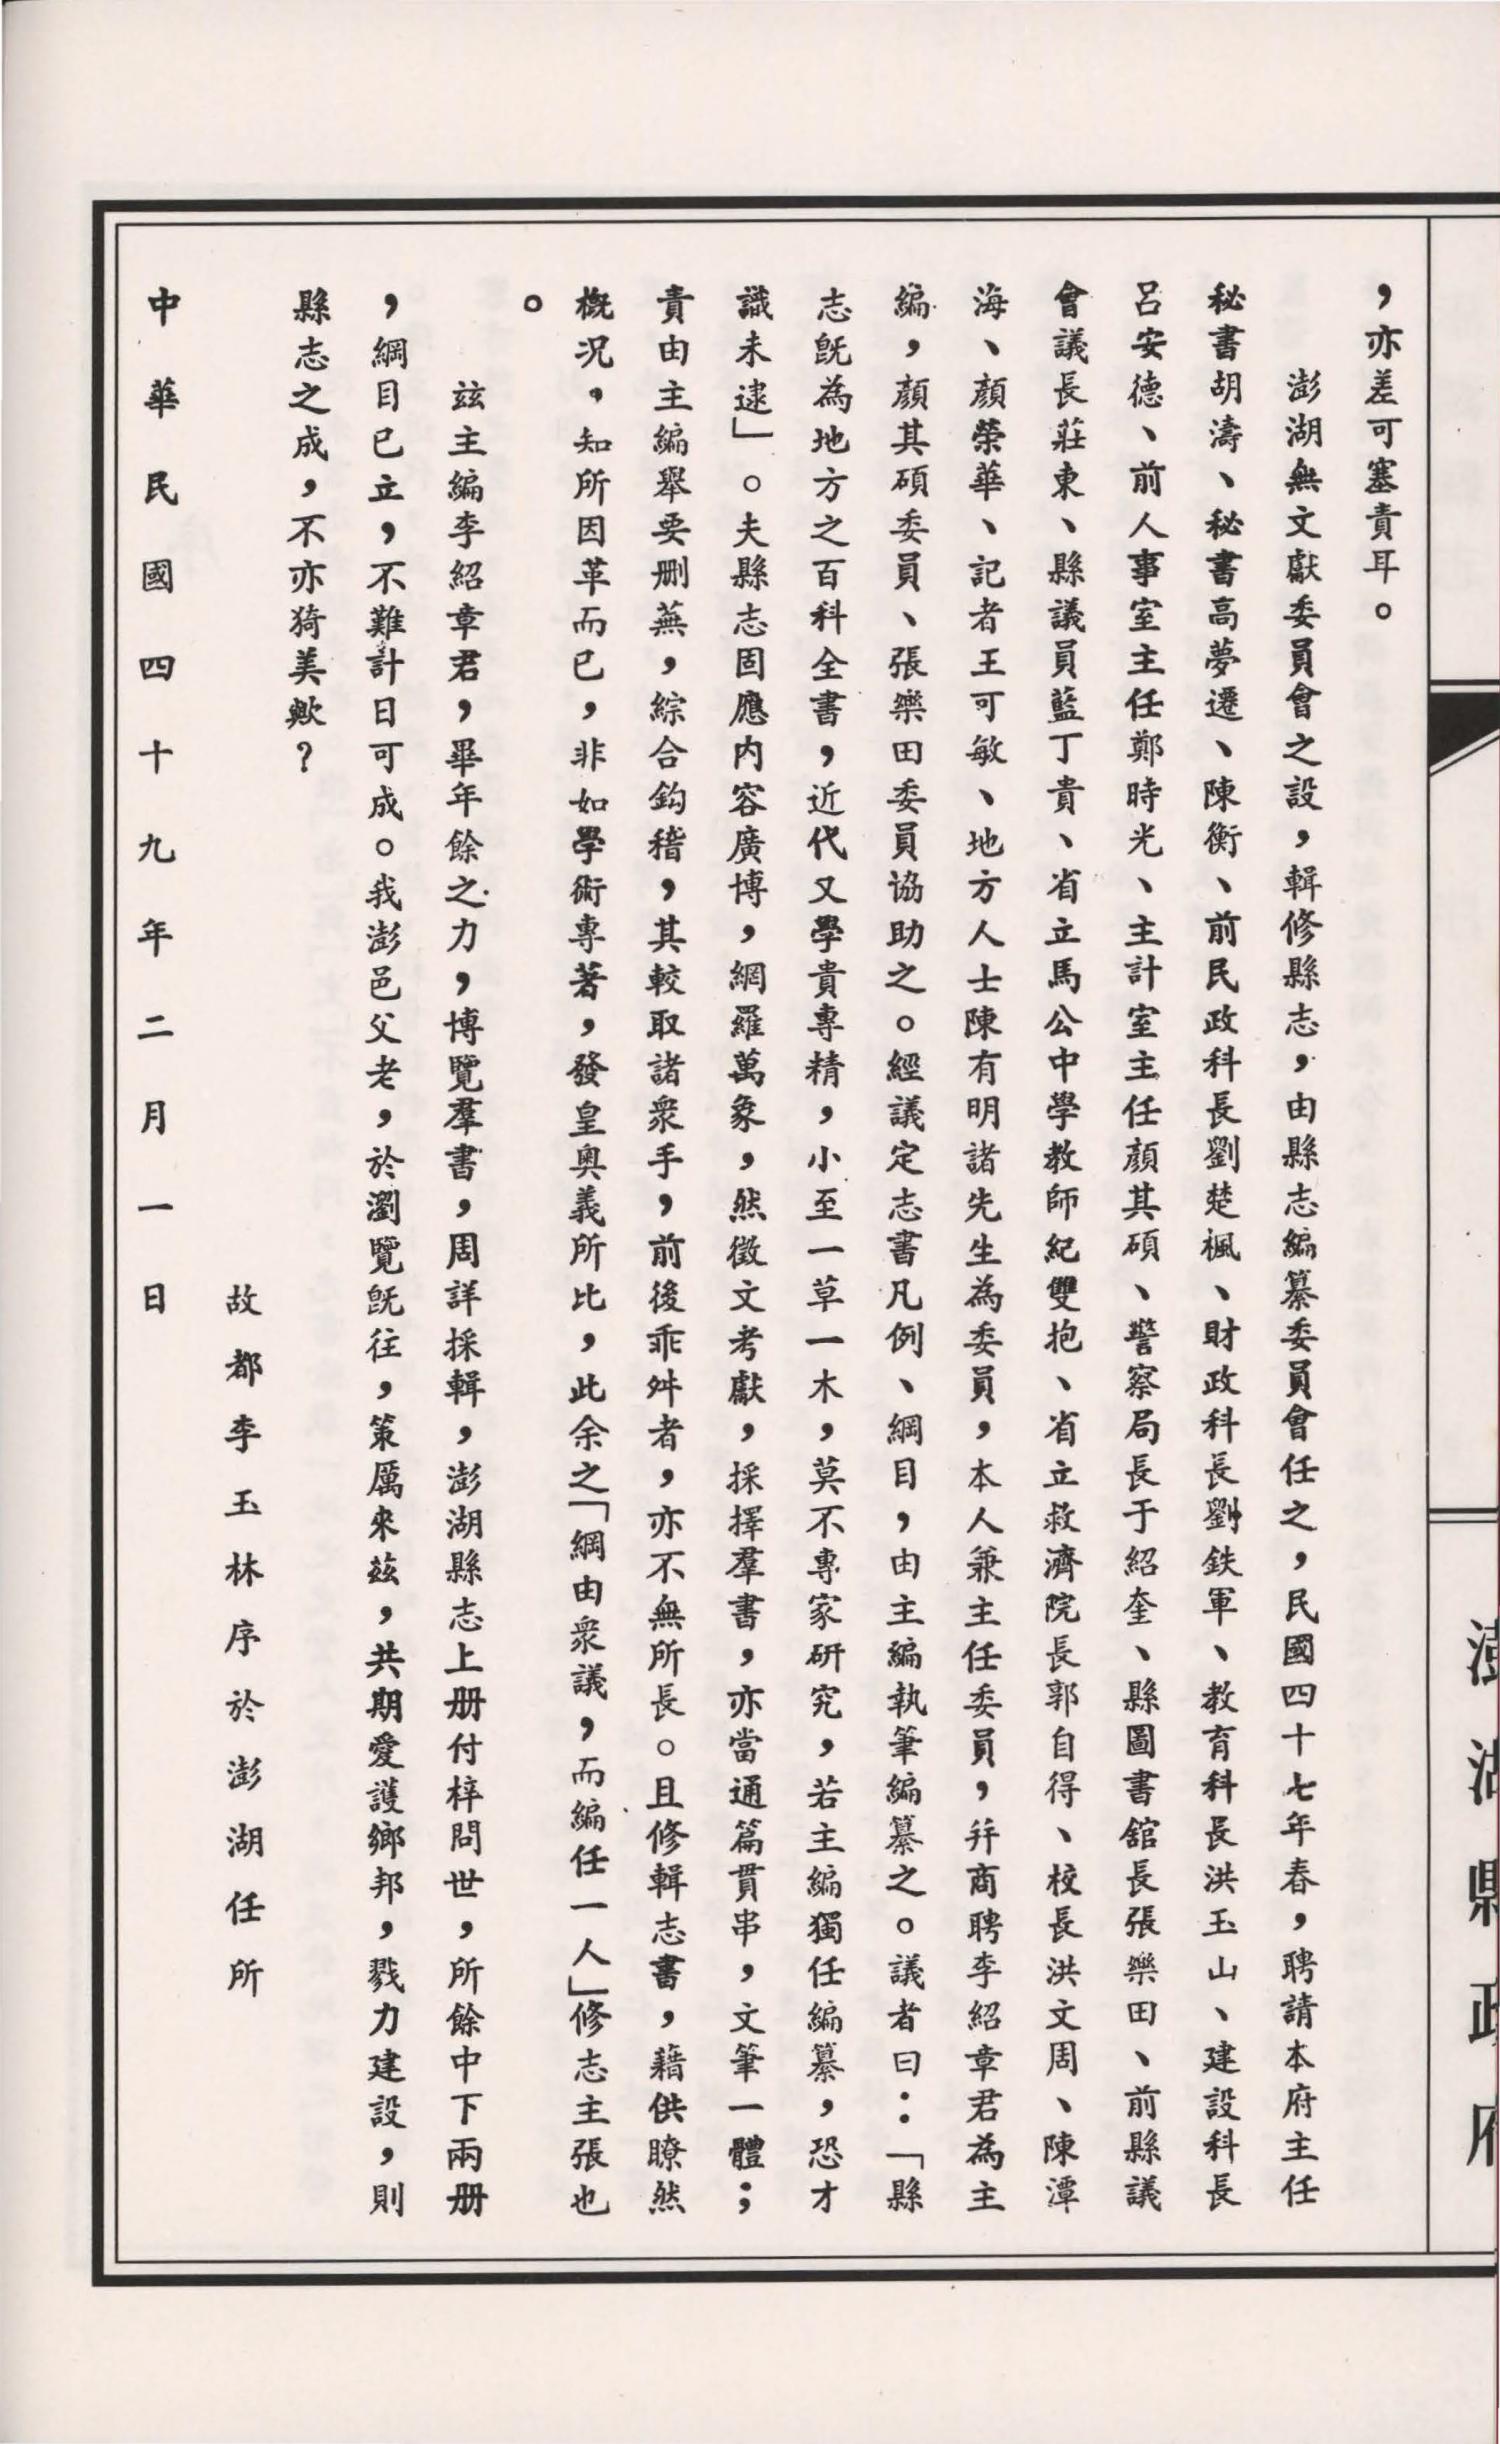 澎湖縣政府
，亦差可塞責耳。
澎湖無文獻委員會之設，輯修縣志，由縣志編纂委員會任之，民國四十七年春，聘請本府主任
秘書胡濤、秘書高夢遷、陳衡、前民政科長劉楚楓、財政科長劉鉄軍、教育科長洪玉山、建設科長
呂安德、前人事室主任鄭時光、主計室主任顏其碩、警察局長于紹奎、縣圖書舘長張樂田、前縣議
會議長莊東、縣議員藍丁貴、省立馬公中學教師紀雙抱、省立救濟院長郭自得、校長洪文周、陳潭
海、顏榮華、記者王可敏、地方人士陳有明諸先生為委員，本人兼主任委員，幷商聘李紹章君為主
編，顏其碩委員、張樂田委員協助之。經議定志書凡例、綱目，由主編執筆編纂之。議者曰：「縣
志旣為地方之百科全書，近代又學貴專精，小至一草一木，莫不專家研究，若主編獨任編纂，恐才
識未逮」。夫縣志固應内容廣博，網羅萬象，然徵文考獻，採擇羣書，亦當通篇貫串，文筆一體；
責由主編舉要删蕪，綜合鈎稽，其較取諸衆手，前後乖舛者，亦不無所長。且修輯志書，藉供瞭然
概况，知所因革而已，非如學術專著，發皇奥義所比，此余之「綱由衆議，而編任一人」修志主張也
。
玆主編李紹章君，畢年餘之力，博覽羣書，周詳採輯，澎湖縣志上册付梓問世，所餘中下兩册
，綱目已立，不難計日可成。我澎邑父老，於瀏覽旣往，策厲來玆，共期愛護鄉邦，戮力建設，則
縣志之成，不亦猗美歟？
故都李玉林序於澎湖任所
中華民國四十九年二月一日